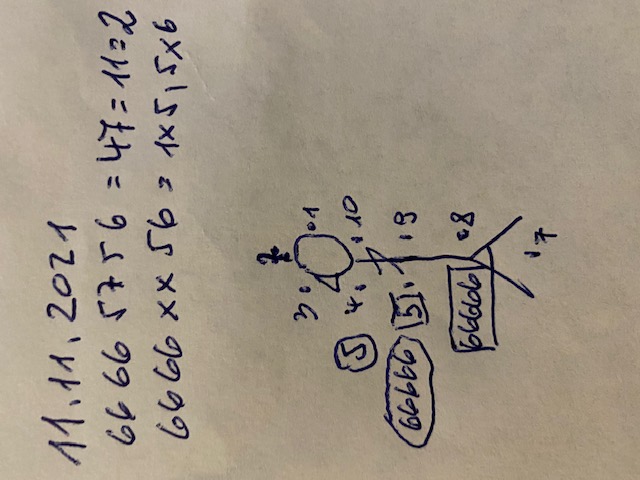 11.11.2021
6666 5756 = 47 = 11 = 2
6666 xx 56 = 1x5, 5x6
2
3 1
5 4 10
66666 5 9
66666 8
7